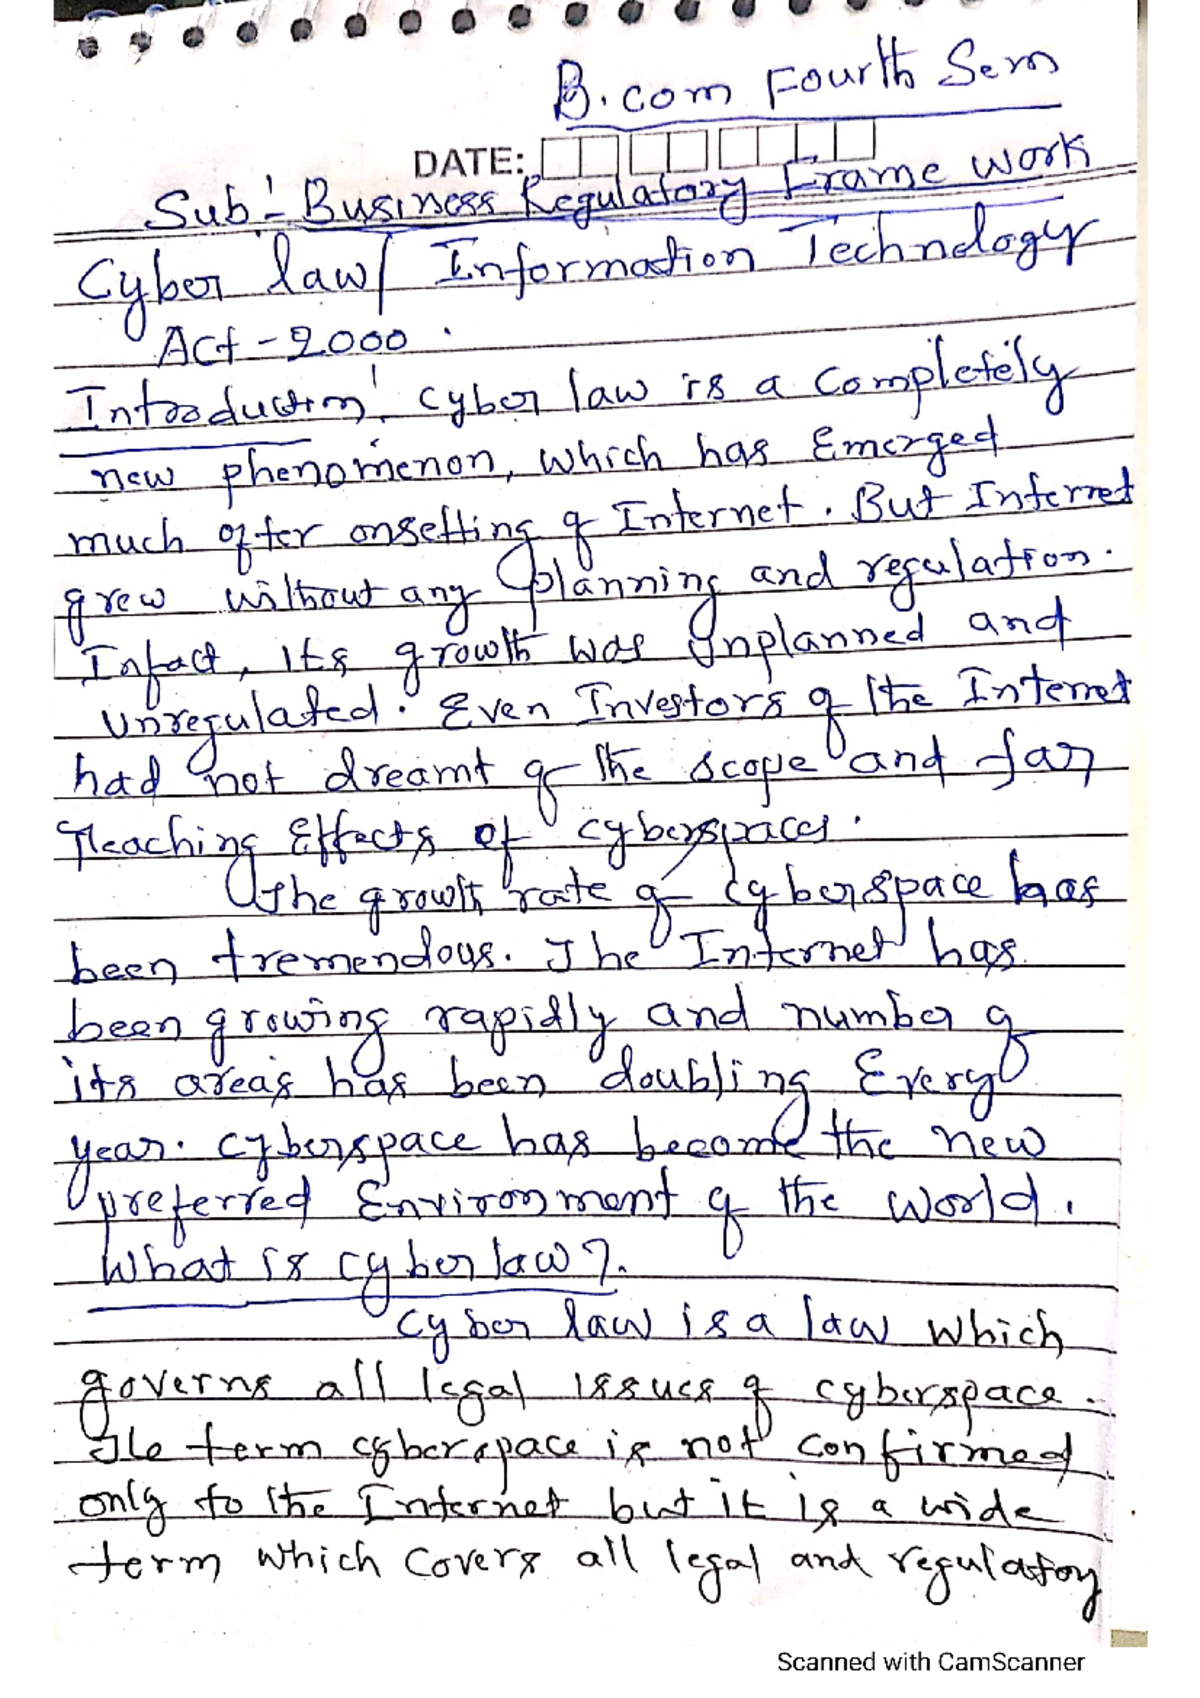 B.com Fourth Sem
DATE:
Sub:- Business Regulatory Frame work
Cyber law/ Information Technology
Act-2000.
Introduction: Cyber law is a completely
new phenomenon, which has Emerged
much after onsetting of Internet. But Internet
grew without any planning and regulation.
Infact, its growth was Unplanned and
unregulated. Even Investors of the Internet
had not dreamt of the scope and far
reaching Effects of cyberspaces.
The growth rate of cyberspace has
been tremendous. The Internet has
been growing rapidly and number of
its areas has been doubling Every
year. Cyberspace has become the new
preferred Environment of the world.
What is cyber law?.
Cyber law is a law which
governs all legal issues of cyberspace.
The term cyberspace is not confirmed
only to the Internet but it is a wide
term which covers all legal and regulatory
Scanned with CamScanner